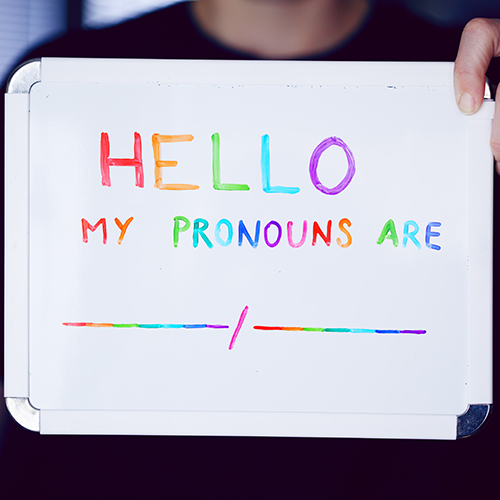 HELLO
MY PRONOUNS ARE
______/______